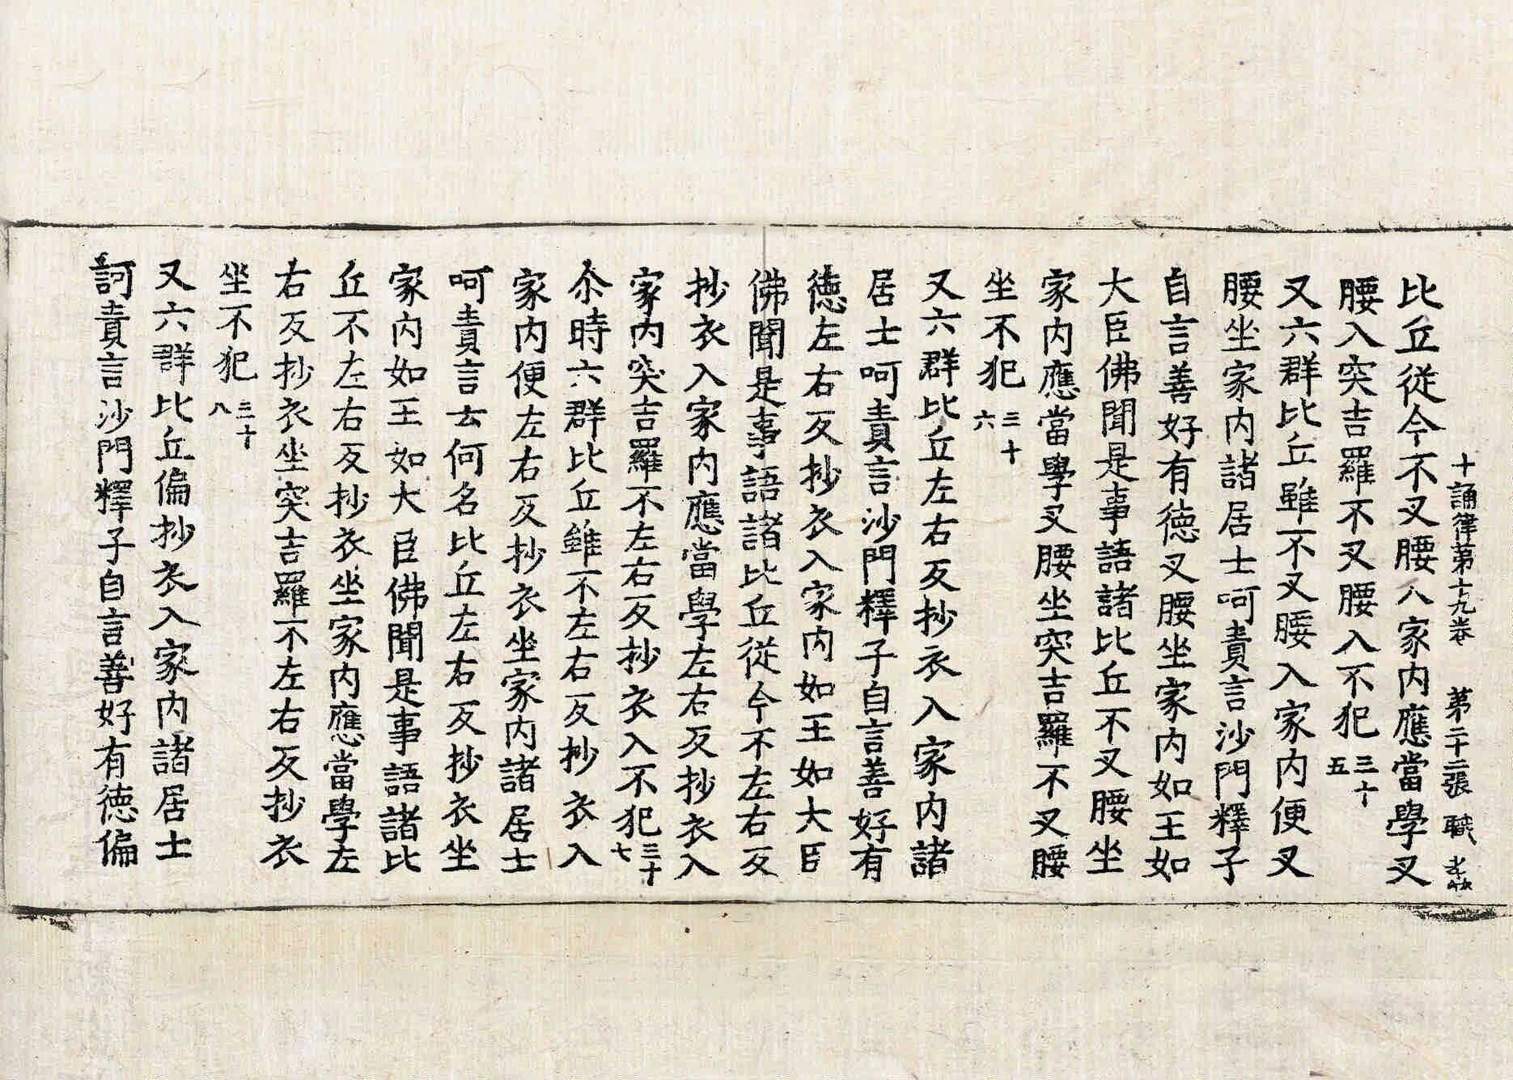 十誦律第十九卷 第二十二張 職
比丘從今不叉腰入家內應當學叉
腰入突吉羅不叉腰入不犯三十五
又六群比丘雖不叉腰入家內便叉
腰坐家內諸居士呵責言沙門釋子
自言善好有德叉腰坐家內如王如
大臣佛聞是事語諸比丘不叉腰坐
家內應當學叉腰坐突吉羅不叉腰
坐不犯三十六
又六群比丘左右反抄衣入家內諸
居士呵責言沙門釋子自言善好有
德左右反抄衣入家內如王如大臣
佛聞是事語諸比丘從今不左右反
抄衣入家內應當學左右反抄衣入
家內突吉羅不左右反抄衣入不犯三十七
尒時六群比丘雖不左右反抄衣入
家內便左右反抄衣坐家內諸居士
呵責言云何名比丘左右反抄衣坐
家內如王如大臣佛聞是事語諸比
丘不左右反抄衣坐家內應當學左
右反抄衣坐突吉羅不左右反抄衣
坐不犯三十八
又六群比丘偏抄衣入家內諸居士
訶責言沙門釋子自言善好有德偏